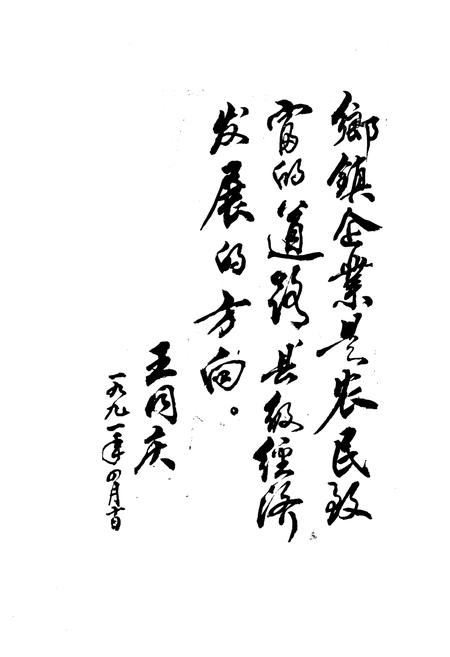 鄉鎮企業是农民致
富的道路县级經济
发展的方向。
王同庆
一九九一年四月十日